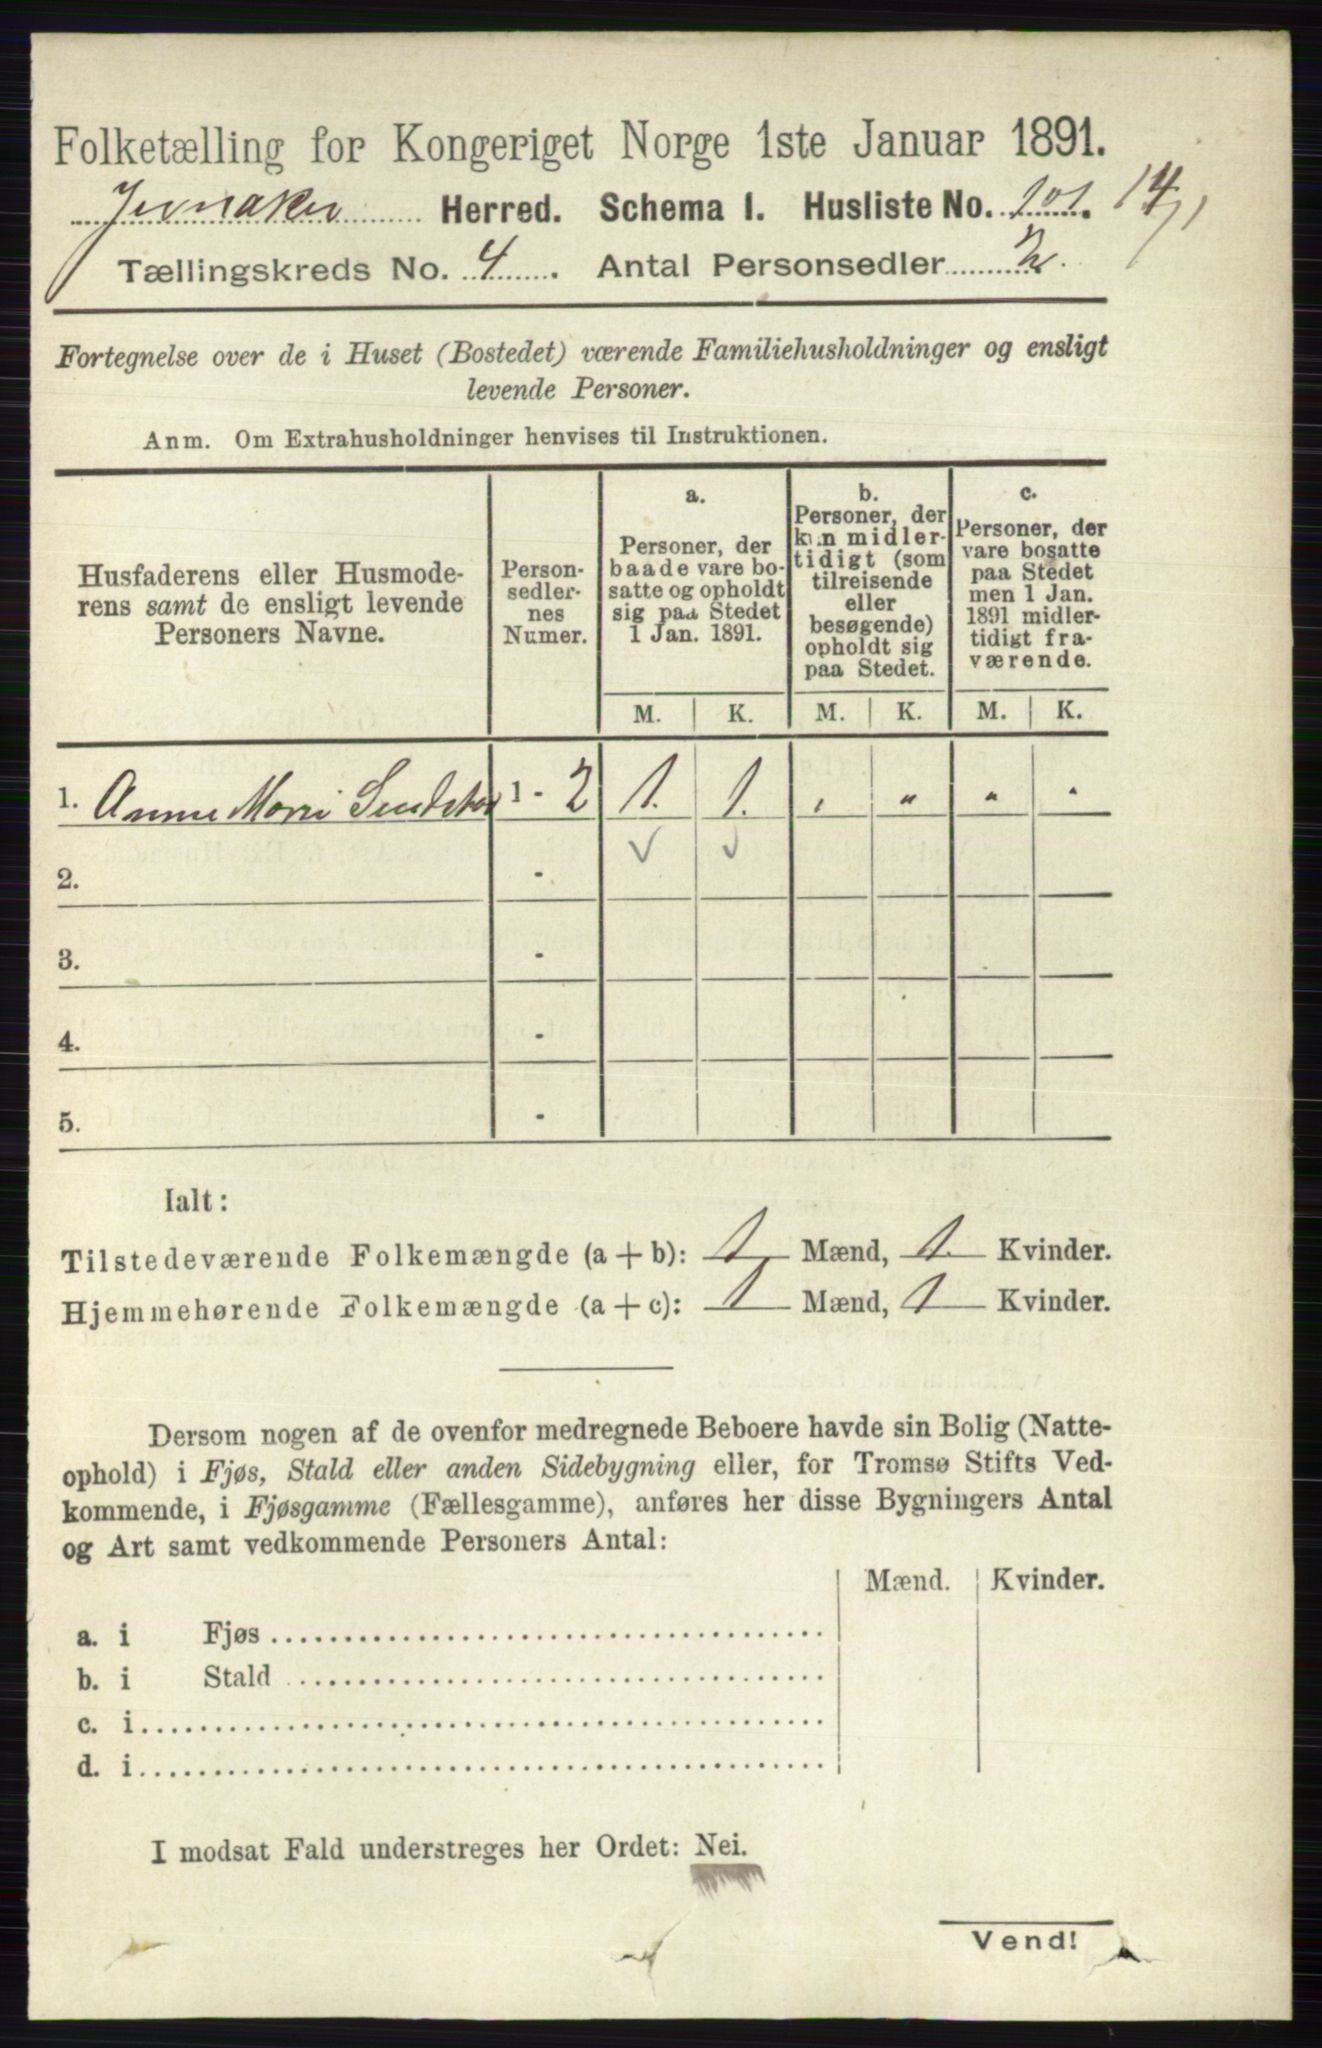 Folketælling for Kongeriget Norge 1ste Januar 1891.
Jevnaker Herred. Schema I. Husliste No. 101. 14/1
Tællingskreds No. 4. Antal Personsedler 2.
Fortegnelse over de i Huset (Bostedet) værende Familiehusholdninger og ensligt
levende Personer.
Anm. Om Extrahusholdninger henvises til Instruktionen.
Husfaderens eller Husmode-
rens samt de ensligt levende
Personers Navne.
Person-
sedler-
nes
Numer.
a.
Personer, der
baade vare bo-
satte og opholdt
sig paa Stedet
1 Jan. 1891.
b.
Personer, der
kun midler-
tidigt (som
tilreisende
eller
besøgende)
opholdt sig
paa Stedet.
c.
Personer, der
vare bosatte
paa Stedet
men 1 Jan.
1891 midler-
tidigt fra-
værende.
M. K. M. K. M. K.
1. Anne Marie 1 - 2 1. 1. " " " "
2. -
3. -
4. -
5. -
Ialt:
Tilstedeværende Folkemængde (a + b): 1 Mænd, 1. Kvinder.
Hjemmehørende Folkemængde (a + c): 1 Mænd, 1 Kvinder.
Dersom nogen af de ovenfor medregnede Beboere havde sin Bolig (Natte-
ophold) i Fjøs, Stald eller anden Sidebygning eller, for Tromsø Stifts Ved-
kommende, i Fjøsgamme (Fællesgamme), anføres her disse Bygningers Antal
og Art samt vedkommende Personers Antal:
Mænd. Kvinder.
a. i Fjøs
b. i Stald
c. i
d. i
I modsat Fald understreges her Ordet: Nei.
Vend!